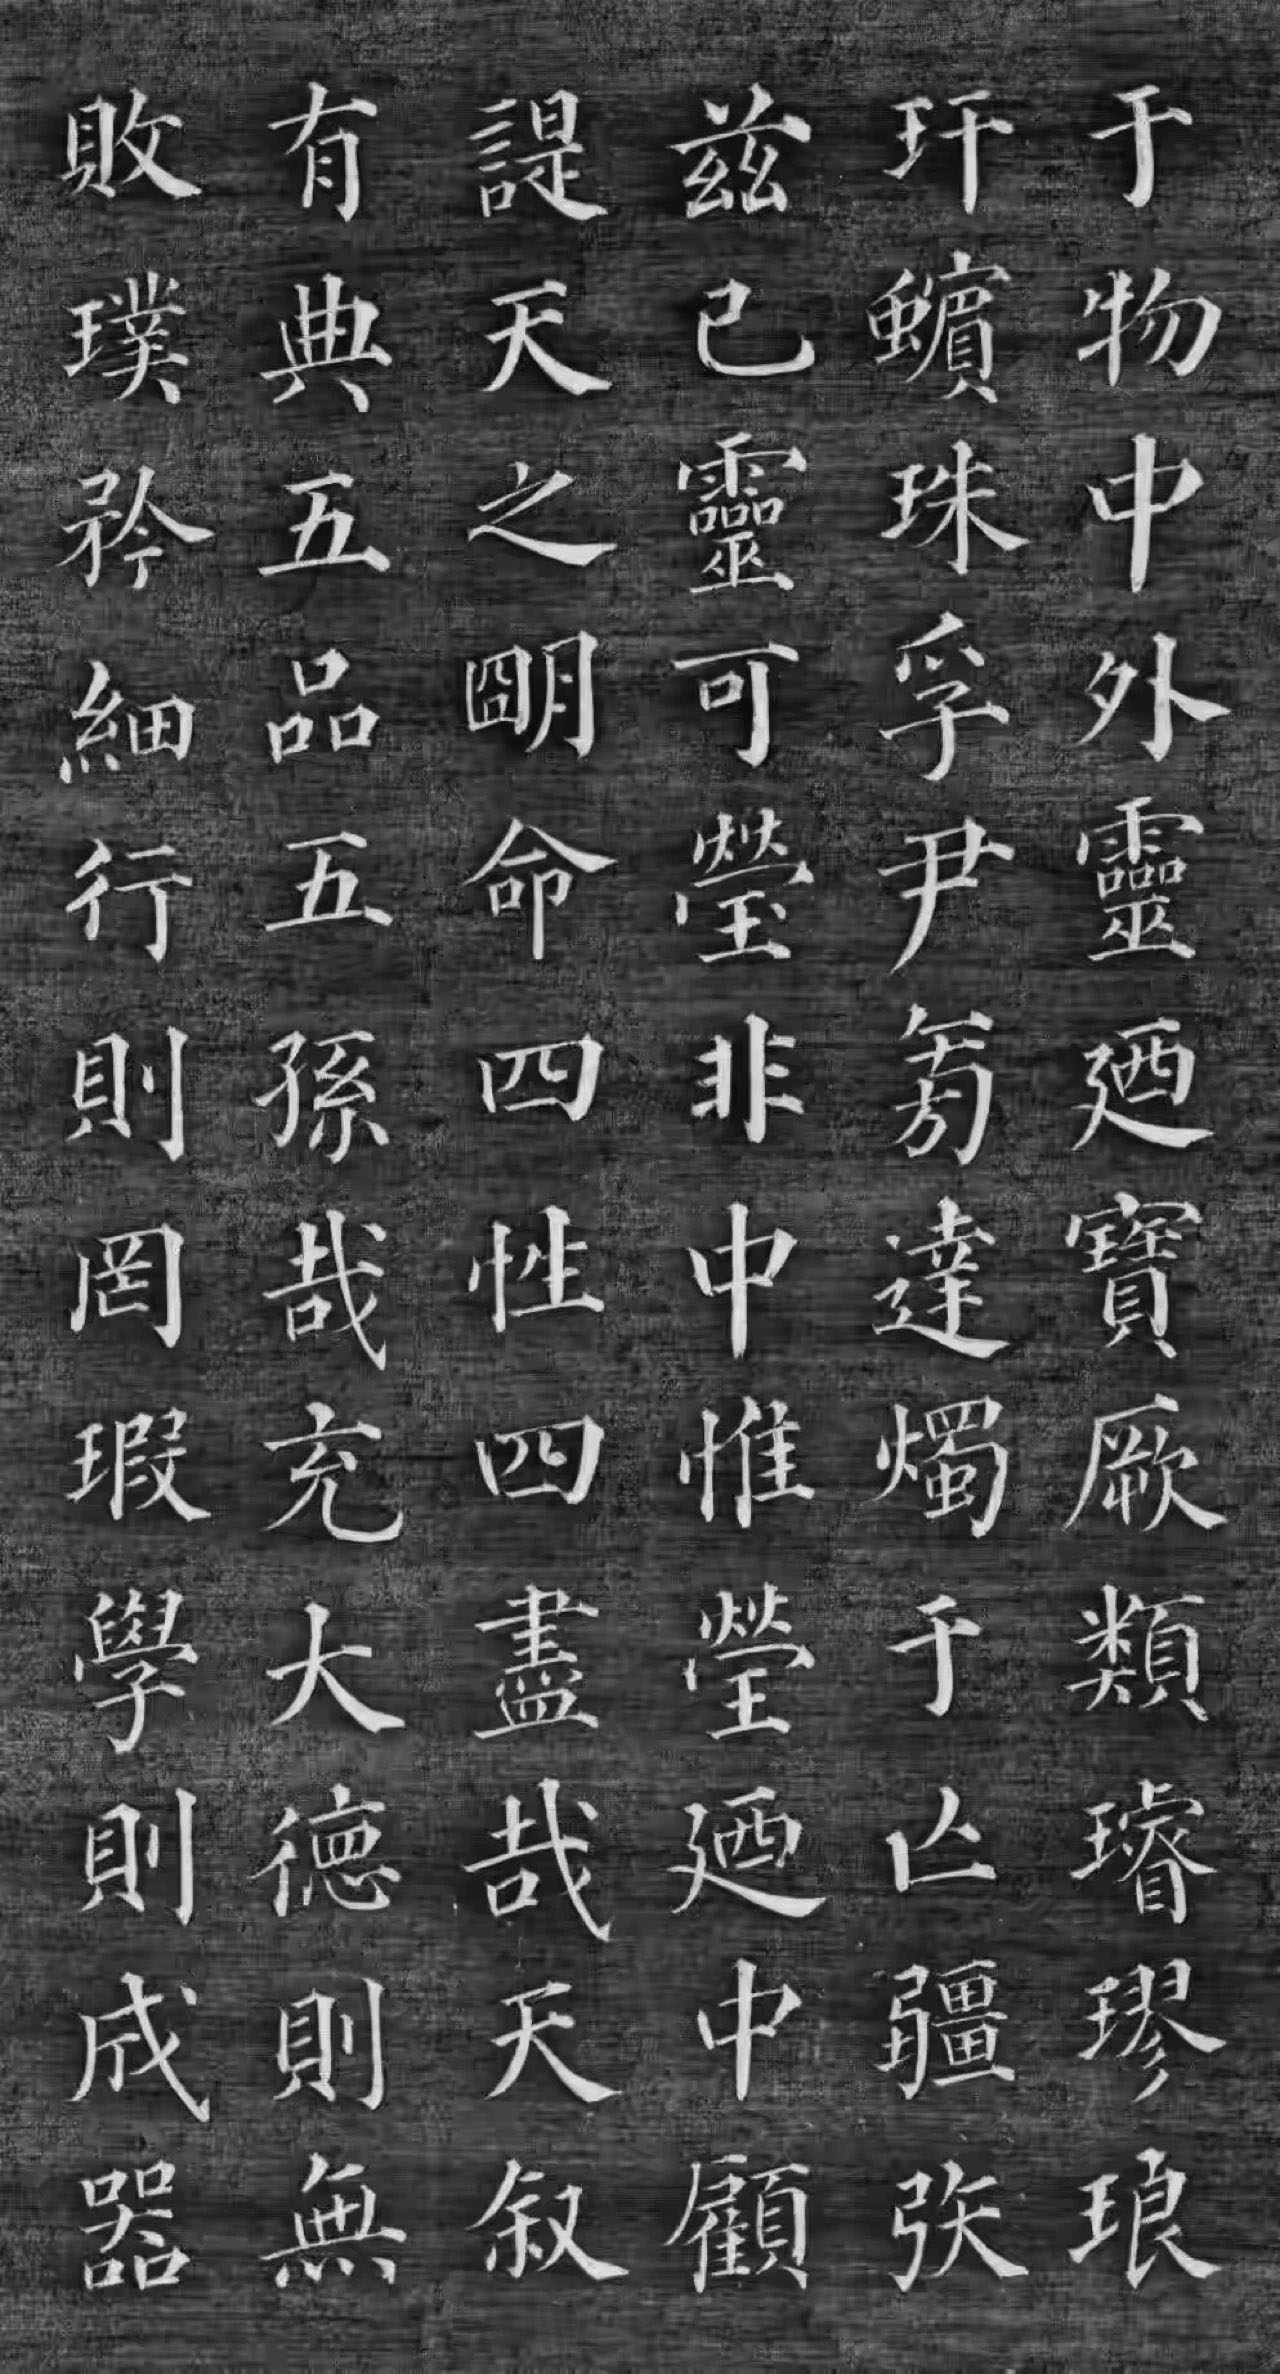 于物中外靈廼寶厥類璿璆琅
玕蠙珠孚尹旁達燭于亾疆彂
茲已靈可瑩非中惟瑩廼中顧
諟天之朙命四性四盡哉天叙
有典五品五孫哉充大德則無
敗璞矜細行則罔瑕學則成器